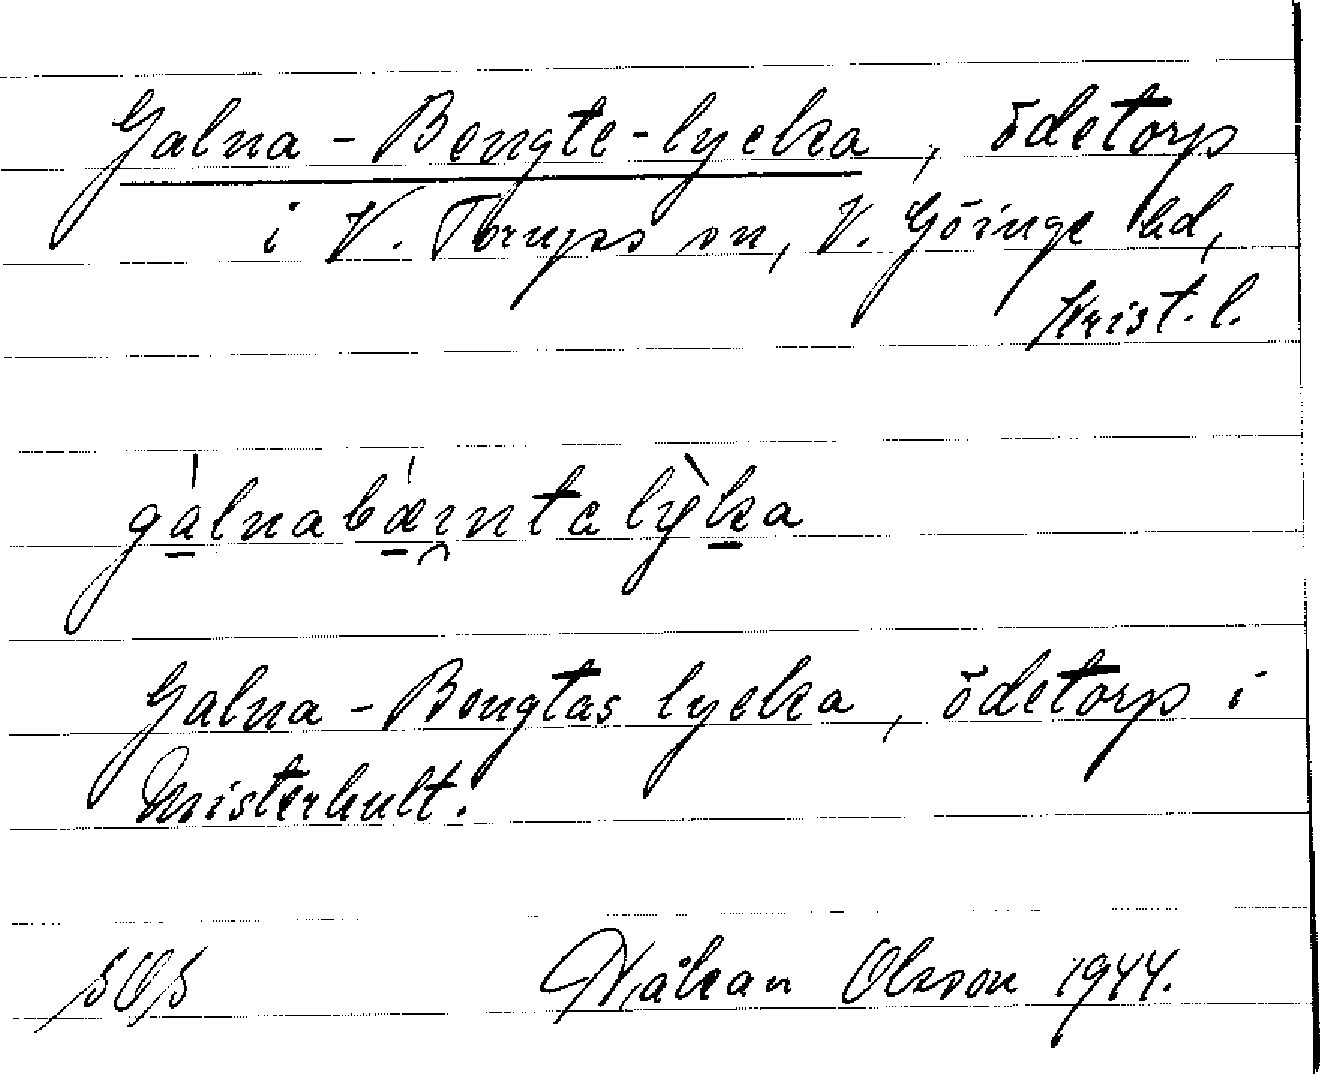 Galna-Bengte-lycka, ödetorp
i V. Torups sn, V. Göinge hd,
Krist. l.
Galna-Bengtas lycka, ödetorp i
Misterhult.
Håkan Olsson 1944.